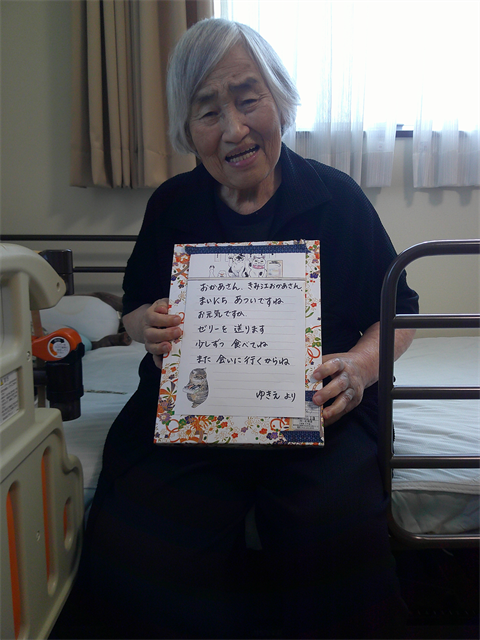 おかあさん、きみ江おかあさん
まいにち あついですね
お元気ですか、
ゼリーを 送ります
少しずつ 食べてね
また 会いに 行くからね
ゆきえ より